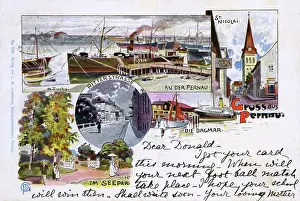 ST. NICOLAI.
AN DER PERNAU.
RITTERSTRASSE
Gruss aus
Pernau.
DIE DAGMAR.
IM SEEPARK
Dear Donald.
I got your card
this morning. When will
your next foot ball match
take place - I hope your school
will win then. Shall write soon - Your loving Mother